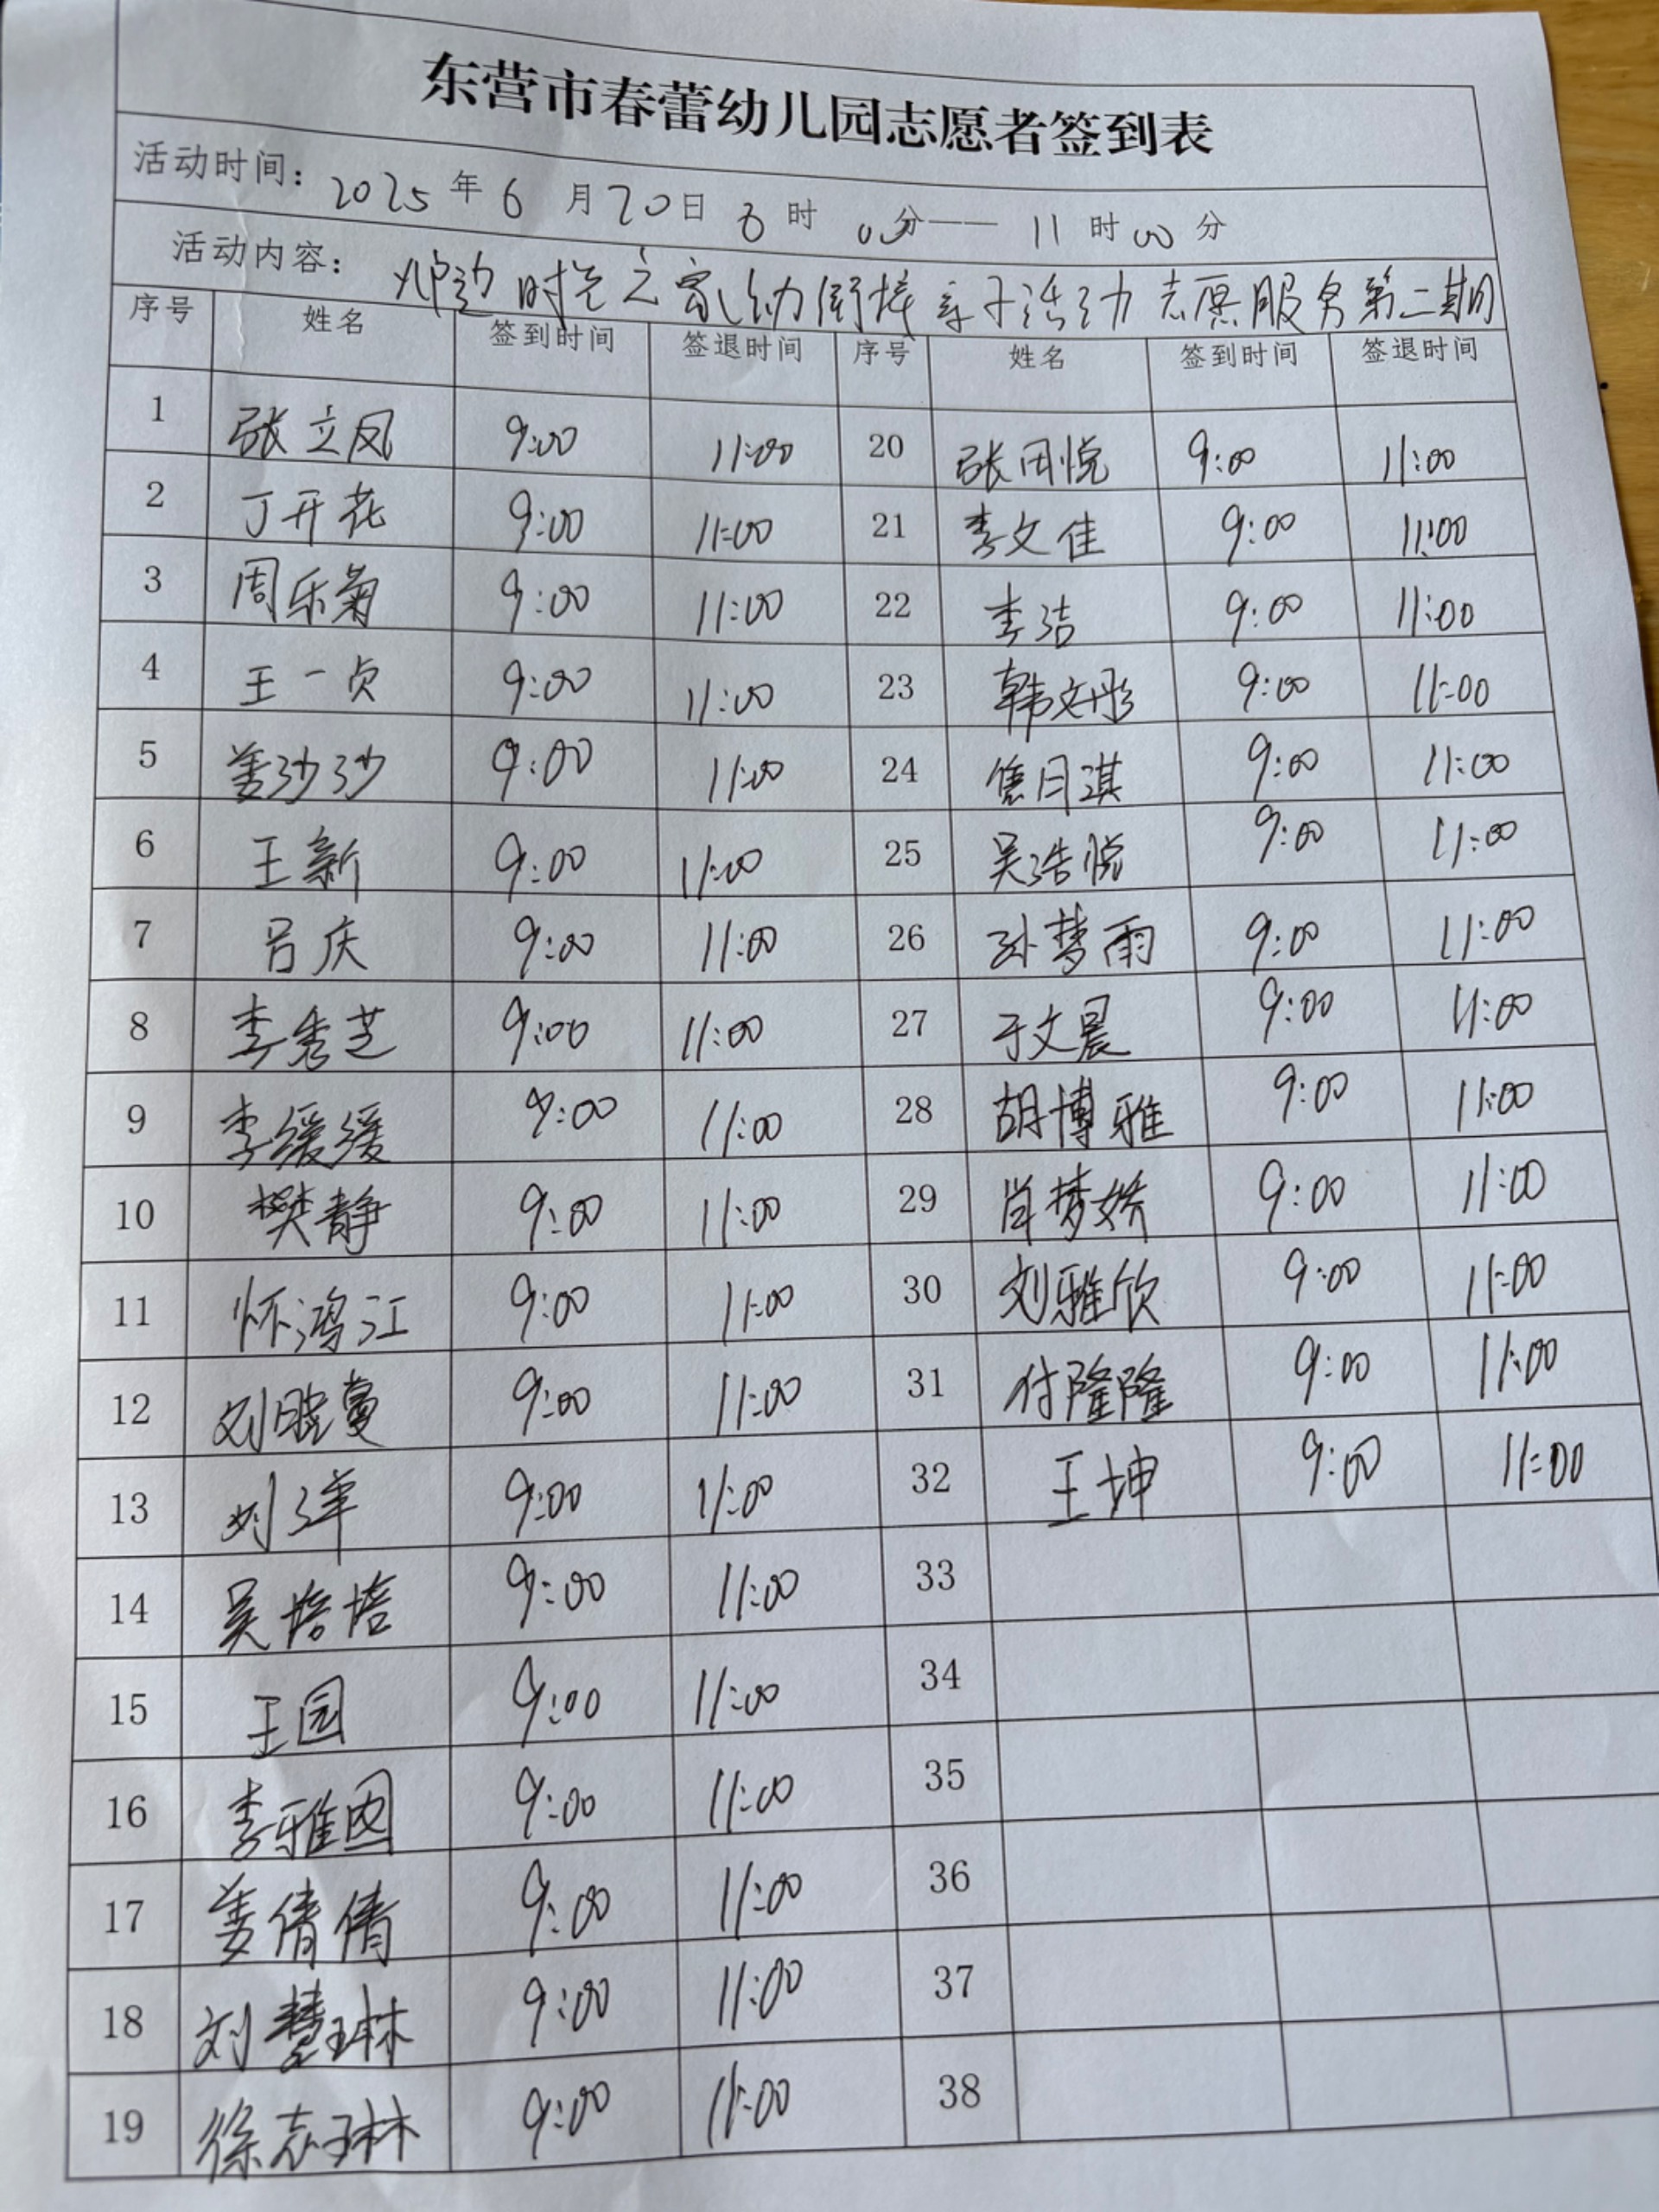 东营市春蕾幼儿园志愿者签到表
活动时间：2025年6月20日8时00分——11时00分
活动内容：时光之家幼衔接亲子活动志愿服务第二期
序号 姓名 签到时间 签退时间 序号 姓名 签到时间 签退时间
1 张立凤 9:00 11:00 20 张田悦 9:00 11:00
2 丁开花 9:00 11:00 21 李文佳 9:00 11:00
3 周乐菊 9:00 11:00 22 李洁 9:00 11:00
4 王一贞 9:00 11:00 23 韩文彤 9:00 11:00
5 姜沙沙 9:00 11:00 24 隽月淇 9:00 11:00
6 王新 9:00 11:00 25 吴浩悦 9:00 11:00
7 吕庆 9:00 11:00 26 孙梦雨 9:00 11:00
8 李秀芝 9:00 11:00 27 于文晨 9:00 11:00
9 李缓缓 9:00 11:00 28 胡博雅 9:00 11:00
10 樊静 9:00 11:00 29 肖梦娇 9:00 11:00
11 怀鸿江 9:00 11:00 30 刘雅欣 9:00 11:00
12 刘晓蔓 9:00 11:00 31 付隆隆 9:00 11:00
13 刘洋 9:00 11:00 32 王坤 9:00 11:00
14 吴培培 9:00 11:00 33
15 王园 9:00 11:00 34
16 李雅囡 9:00 11:00 35
17 姜倩倩 9:00 11:00 36
18 刘慧琳 9:00 11:00 37
19 徐志琳 9:00 11:00 38